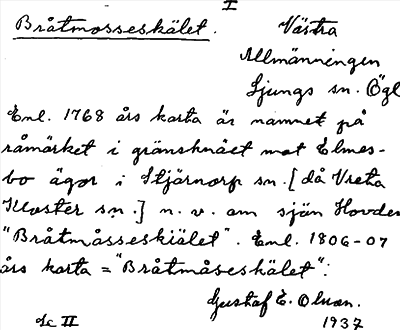 I
Bråtmosseskälet. Västra
Allmänningen
Ljungs sn. Ögl
Enl. 1768 års karta är namnet på
råmärket i gränsknäet mot Elmes-
bo ägor i Stjärnorp sn. [då Vreta
Kloster sn.] n. v. om sjön Hovden
"Bråtmåsseskiälet". Enl. 1806-07
års karta = "Bråtmåseskälet":
Gustaf E. Olson.
Lc II 1937